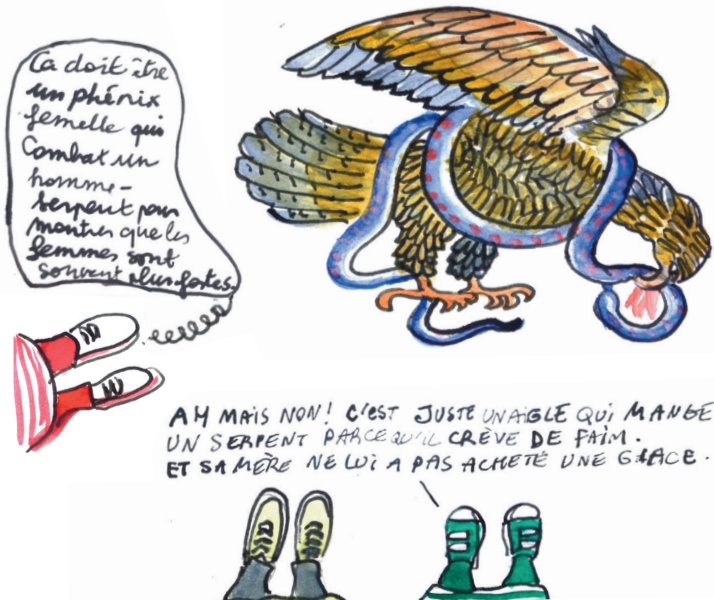 Ça doit être
un phénix
femelle qui
Combat un
homme-
serpent pour
montrer que les
femmes sont
souvent plus fortes.
AH MAIS NON! C'EST JUSTE UN AIGLE QUI MANGE
UN SERPENT PARCE QU'IL CRÈVE DE FAIM.
ET SA MÈRE NE LUI A PAS ACHETÉ UNE GLACE.